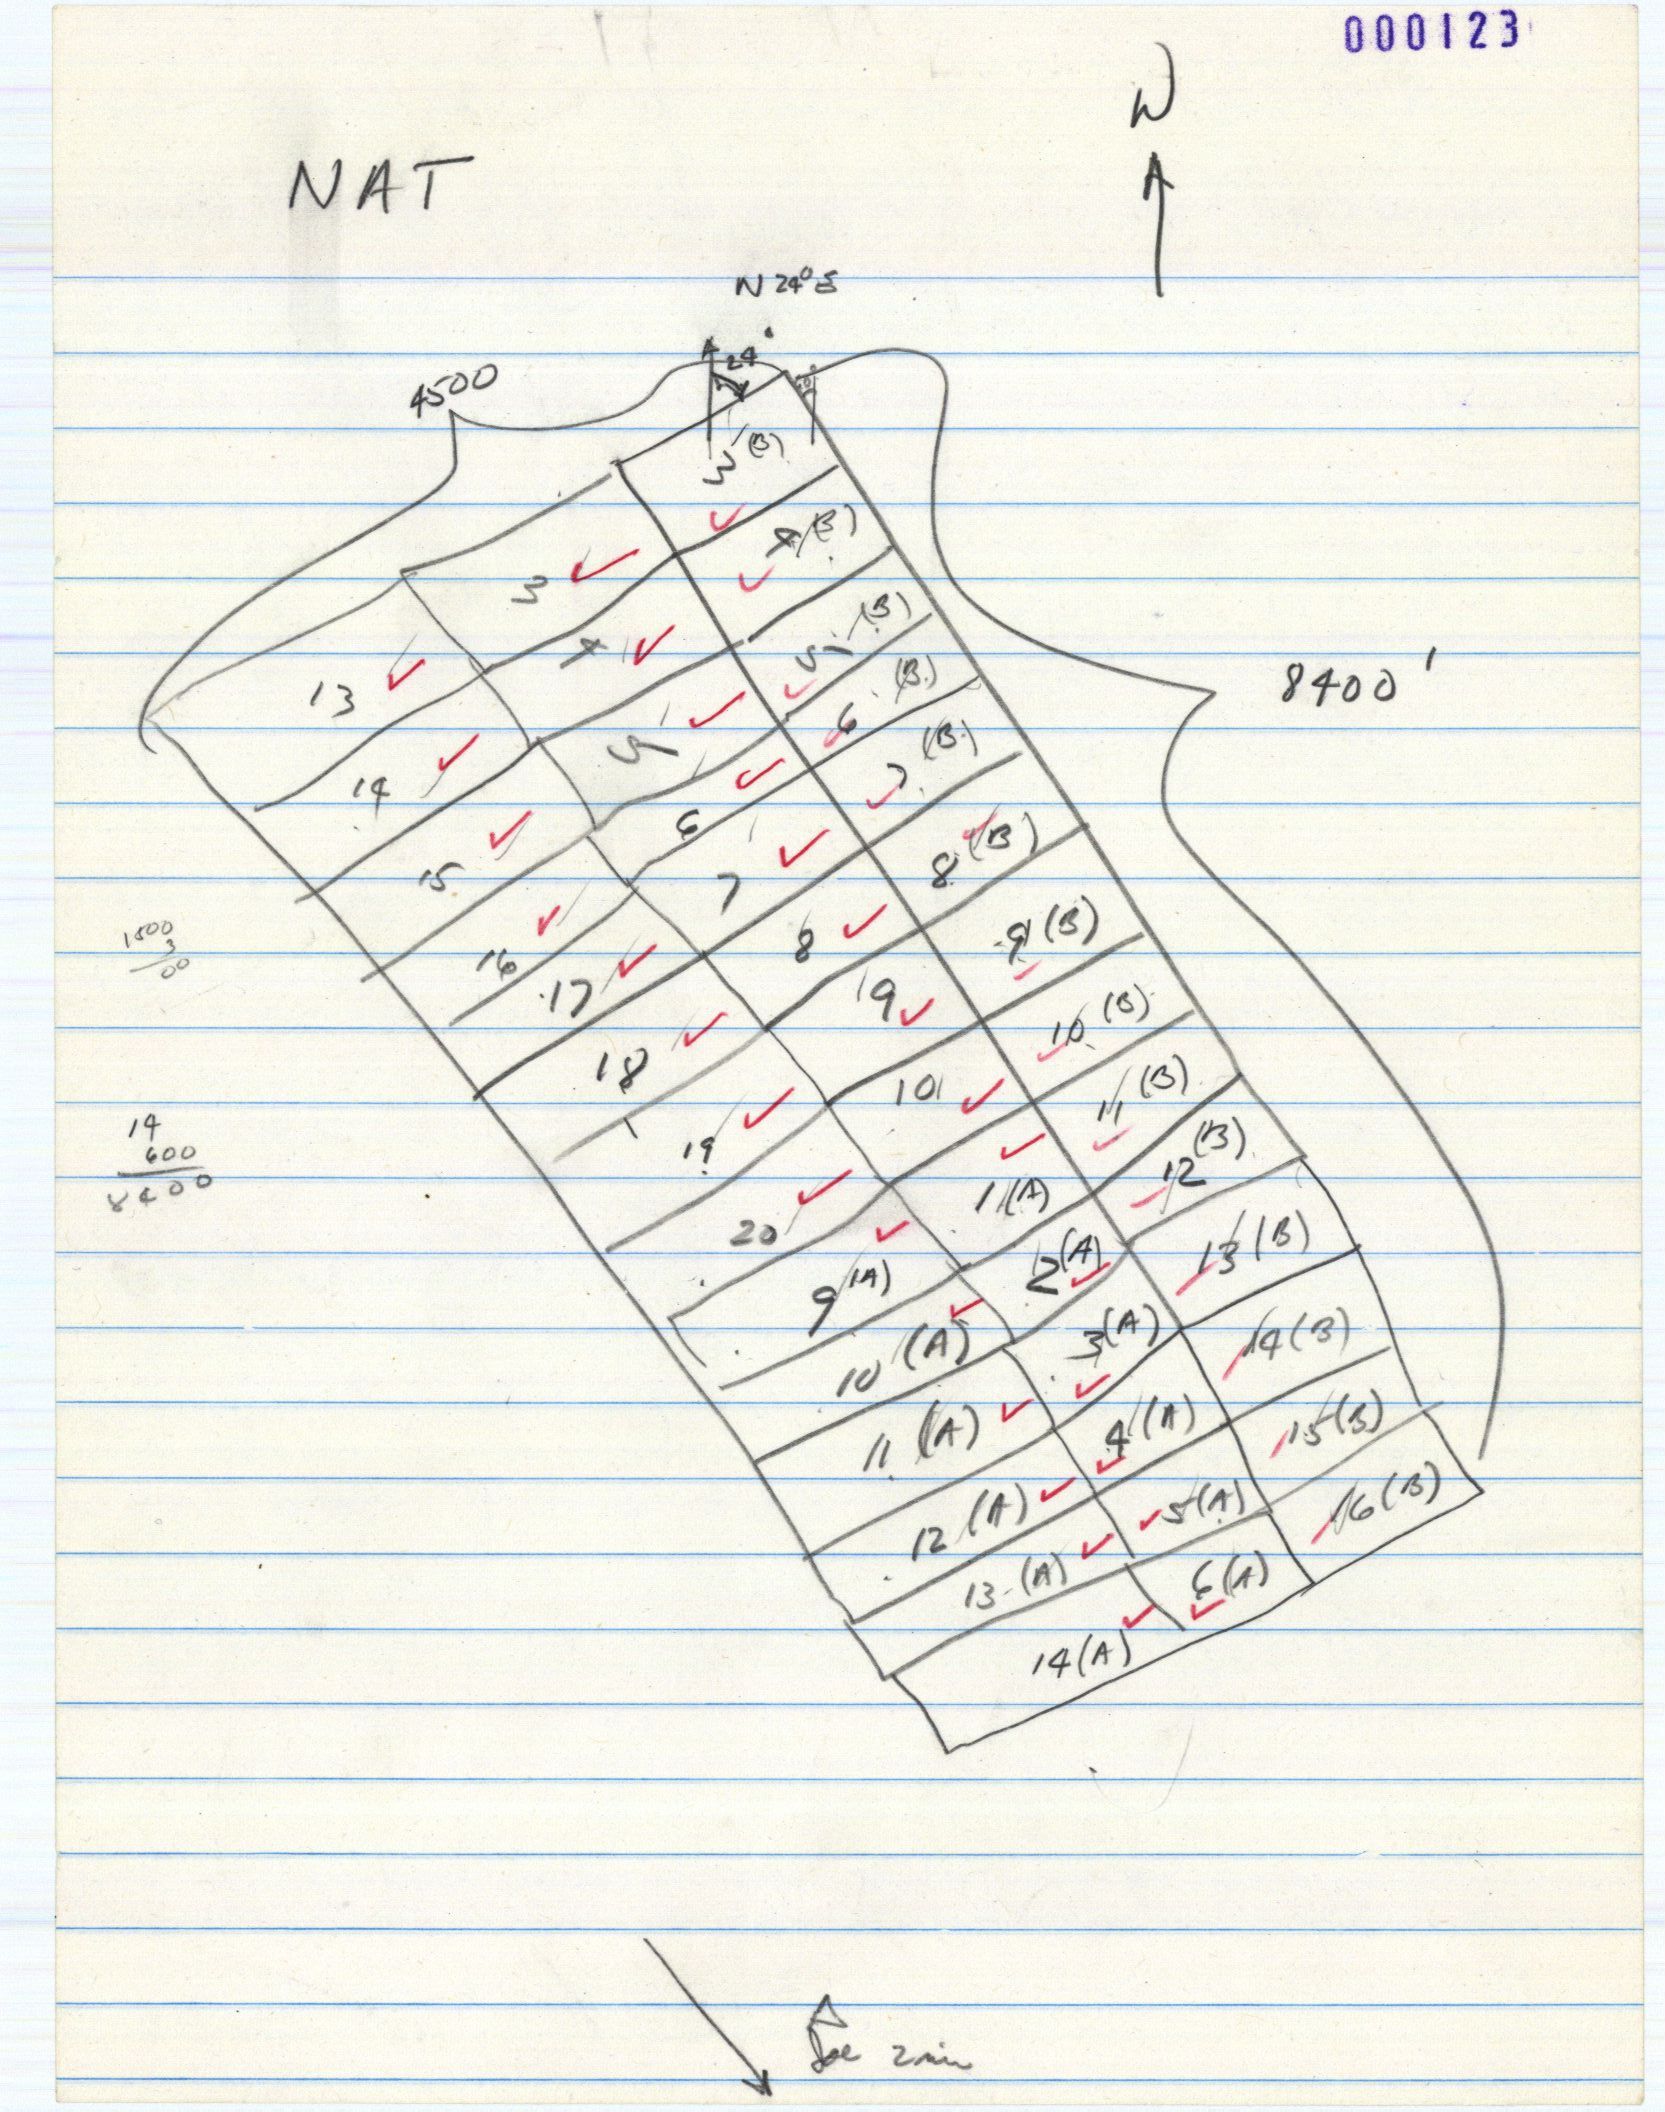 000123
NAT
N 24° E
24°
4500
3 (B)
4 (B)
3
5 (B)
4
6 (B)
8400'
13
5
7 (B)
14
6
8 (B)
15
7
9 (B)
1500
3
00
16
8
17
9
10 (B)
18
10
11 (B)
14
600
8400
19
1 (A)
12 (B)
20
2 (A)
13 (B)
9 (A)
3 (A)
14 (B)
10 (A)
4 (A)
15 (B)
11 (A)
5 (A)
16 (B)
12 (A)
6 (A)
13 (A)
14 (A)